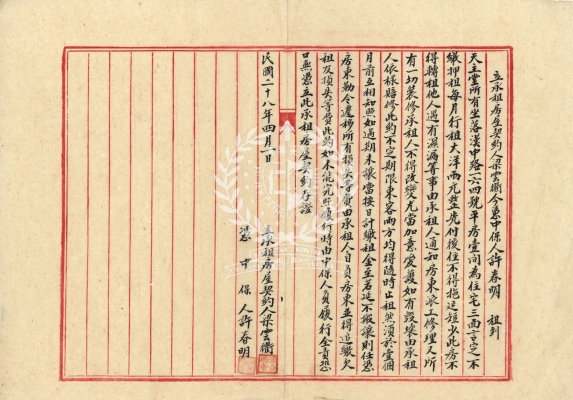 立承租房屋契約人梁雲衢今憑中保人許春明　租到
天主堂所有坐落漢中路六四號平房壹間為住宅三面言定不
繳押租每月行租大洋兩元整先付後住不得拖延短少此房不
得轉租他人遇有濕漏等事由承租人通知房東派工修理又所
有一切裝修承租人不得改變尤當加意愛護如有毀壞由承租
人依樣賠修此約不定期限東客兩方均得隨時止租然須於壹個
月前互相知照如過期未讓當按日計繳租金至若延不搬讓則任憑
房東勒令遷移所有損失等費由承租人自負房東並得追繳欠
租及損失等費此約如未能完照履行時由中保人負履行全責恐
口無憑立此承租房屋契約存證
立承租房屋契約人梁雲衢
憑中保人許春明
民國二十八年四月一日